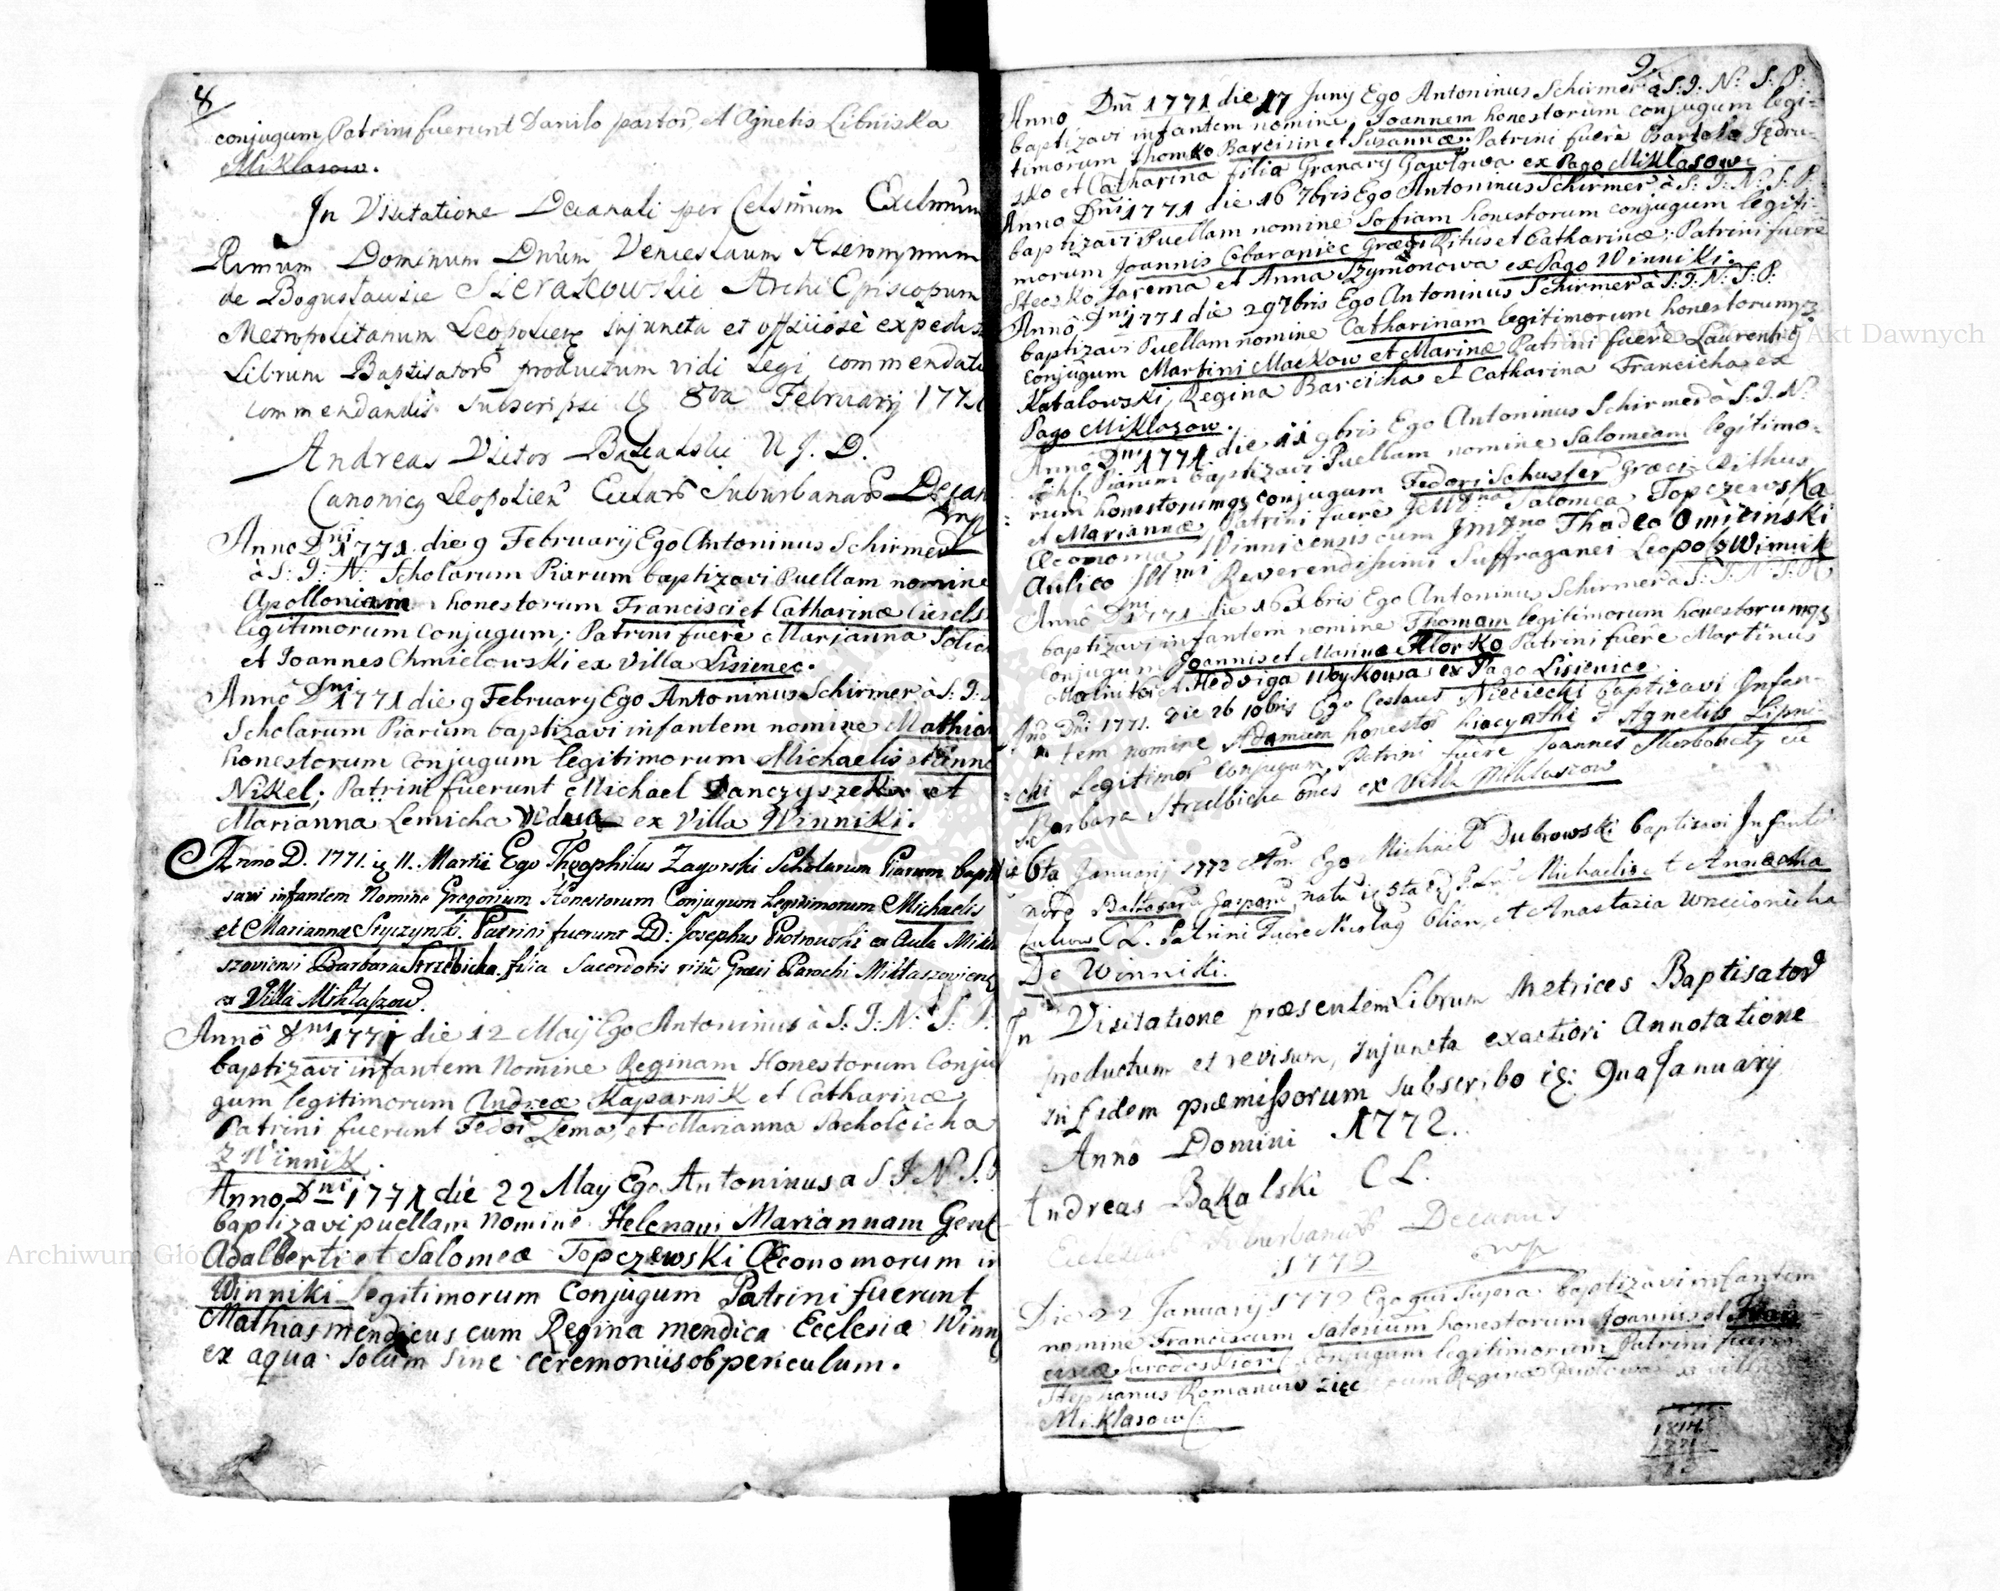 8
conjugum, Patrini fuerunt Danilo pastor, et Agnetis Libniska
Miklasow.
In Visitatione Decanali per Celsimum Exclmum
Rmum Dominum Dnum Venceslaum Hieronymum
de Bogusławice Sierakowski Archi Episcopum
Metropolitanum Leopolien injuncta et officiose expedi
Librum Baptisator productum vidi legi, commendata
commendandis subscripsi 8va Februarij 1771
Andreas Victor Bąkalski U. J. D.
Canonicg Leopolien Suburbanar Decan
mp
Anno Dni 1771 die 9 February Ego Antoninus Schirmer
à S: I: N: Scholarum Piarum baptizavi Puellam nomine
Apolloniam honestorum Francisci et Catharinæ
legitimorum conjugum; Patrini fuerè Marianna
et Joannes Chmielowski ex Villa Lisienec.
Anno Dni 1771 die 9 February Ego Antoninus Schirmer à S: I:
Scholarum Piarum baptizavi infantem nomine Mathia
honestorum conjugum legitimorum Michaelis et Anna
Nikel; Patrini fuerunt Michael Danczyszek et
Marianna Lemicha Vidua ex Villa Winniki.
Anno D. 1771. 11. Martii Ego Theophilus Zagorski Scholarum Piarum bapti
savi infantem Nomine Gregorium Honestorum Conjugum Legitimorum Michaelis
et Mariannæ Styczynski. Patrini fuerunt DD: Josephus Piotrowski ex Aula Mikl
szoviensi Barbara Strzebicka filia Sacerdotis ritus Græci Parochi Miklaszoviens
ex Villa Miklaszow.
Anno Dni 1771 die 12 Maij Ego Antoninus à S: I: N: S: P.
baptizavi infantem Nomine Reginam Honestorum Conju
gum legitimorum Andreæ Kaparnik et Catharinæ
Patrini fuerunt Fedor Lema, et Marianna Sacholcicha
z Winnik.
Anno Dni 1771 die 22 May Ego Antoninus a S I N: S.
baptizavi puellam nomine Helenam Mariannam Gene
Adalberti et Salomeæ Topczewski Œconomorum in
Winniki legitimorum Conjugum Patrini fuerunt
Mathias mendicus cum Regina mendica Ecclesiæ Winn
ex aqua solum sine ceremoniis ob periculum.
9
Anno Dni 1771 die 17 Juny Ego Antoninus Schirmer à S. I. N: S: P:
baptizavi infantem nomine, Joannem honestorum conjugum legi-
timorum Thomko Barcisin et Suzannæ, Patrini fuerè Bartolo Jędru-
szko et Catharina filia Granary Gawłowa ex Pago Miklasow.
Anno Dni 1771 die 16 7bris Ego Antoninus Schirmer à S: I: N: S: P:
baptizavi Puellam nomine Sofiam honestorum conjugum legiti-
morum Joannis Cbaraniec Græci Ritus et Catharinæ; Patrini fuerè
Steczko Jarema et Anna Szymonowa ex Pago Winniki.
Anno Dni 1771 die 29 7bris Ego Antoninus Schirmer à S: I: N: S: P:
baptizavi Puellam nomine Catharinam legitimorum honestorumq3
conjugum Martini Mackow et Marinæ Patrini fuerè Laurentiq
Kabalowski, Regina Barcicha et Catharina Francicha ex
Pago Miklasow.
Anno Dni 1771 die 11 9bris Ego Antoninus Schirmer à S. I. N:
Piarum baptizavi Puellam nomine Salomeam legitimo-
rum honestorumq3 conjugum Fedor Schuster Græci Rithus
et Mariannæ, Patrini fuere Salomea Topczewska
Œconoma Winnicensis cum Thadeo Omicinski
Aulico Illmi Reverendissimi Suffraganei Leopols Winnik
Anno Dni 1771 die 16 Xbris Ego Antoninus Schirmer à S: I: N: S: P:
baptizavi infantem nomine Thomam legitimorum honestorumq3
conjugum Joannis et Marina Florko Patrini fuere Martinus
et Hedviga Woykowa ex Pago Lisienice
Ano Dni 1771. die 26 10bris Ego Ceslaus Nieciecki baptizavi Infan-
tem nomine Adamum honestor Hiacynthi et Agnetis Lipni-
cki legitimor conjugum Patrini fuere Joannes
Barbara Strzelbicka ones ex Villa Miklaszow
6ta Januarij 1772 Ego Michael Dubrowski baptizavi Infante
Baltasar Gaspar, natu 5ta Michaelis et Anna
C L. Patrini Fuere Nicolag et Anastazia
De Winniki.
In Visitatione præsentem Librum Metrices Baptisator
productum et revisum, injuncta exactiori Annotatione
in fidem præmissorum subscribo 9na January
Anno Domini 1772.
Andreas Bąkalski C L.
Suburbanar Decanus
1772 mp
Die 22 January 1772 Ego qui supra baptizavi infantem
nomine Franciscum Salesium honestorum Joannis et Fran
ciscæ conjugum legitimorum Patrini fuerè
Stephanus Romanow zięc cum Regina ex villa
Miklasow
1814
1771